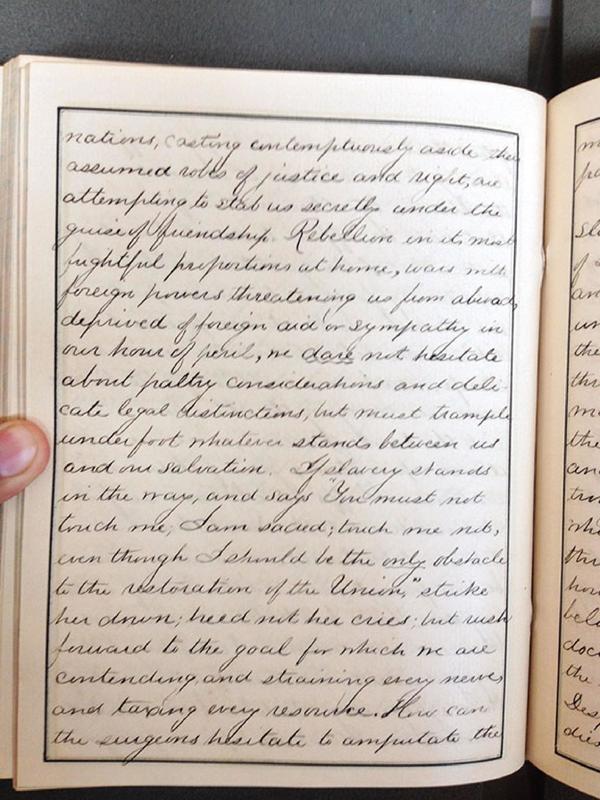 nations, casting contemptuously aside the
assumed robes of justice and right, are
attempting to stab us secretly under the
guise of friendship. Rebellion in its most
frightful proportions at home, wars with
foreign powers threatening us from abroad,
deprived of foreign aid or sympathy in
our hour of peril, we dare not hesitate
about paltry considerations and deli-
cate legal distinctions, but must trample
underfoot whatever stands between us
and our salvation. If slavery stands
in the way, and says "You must not
touch me; I am sacred; touch me not,
even though I should be the only obstacle
to the restoration of the Union," strike
her down; heed not her cries; but rush
forward to the goal for which we are
contending, and straining every nerve,
and taxing every resource. How can
the surgeons hesitate to amputate the